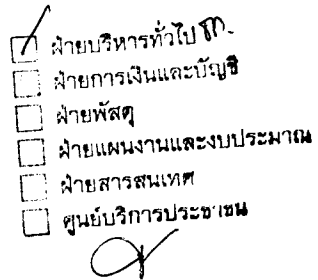 ฝ่ายบริหารทั่วไป
ฝ่ายการเงินและบัญชี
ฝ่ายพัสดุ
ฝ่ายแผนงานและงบประมาณ
ฝ่ายสารสนเทศ
ศูนย์บริการประชาชน